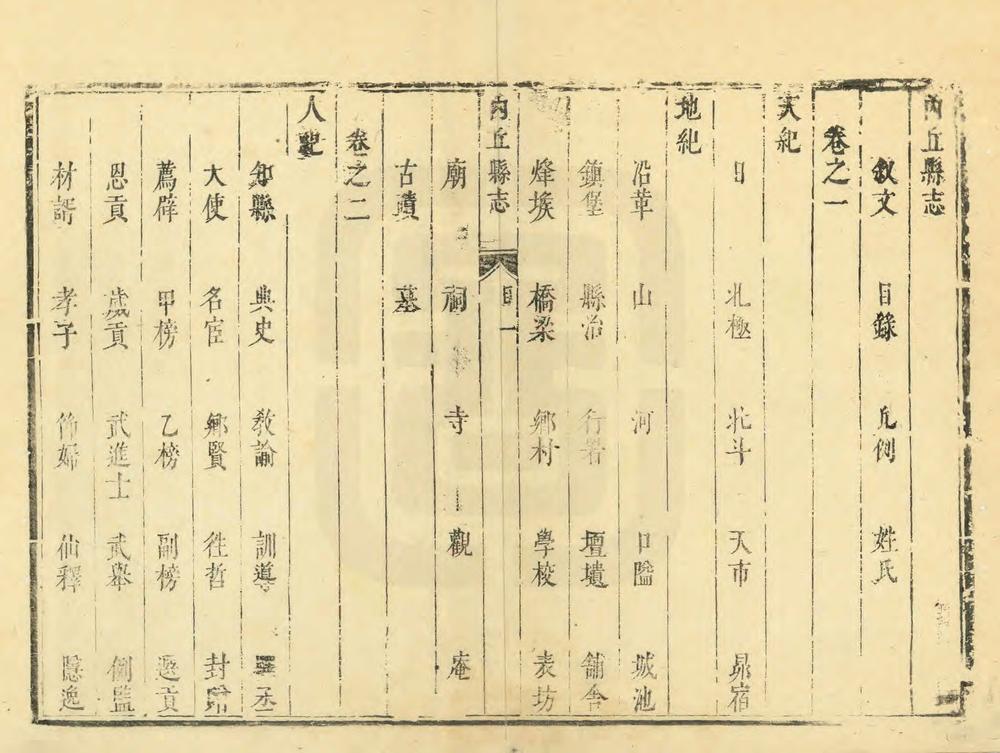 內丘縣志
敘文 目錄 凡例 姓氏
卷之一
天紀
日 北極 北斗 天市 昴宿
地紀
沿革 山 河 口隘 城池
鎮堡 縣治 行署 壇壝 舖舍
烽堠 橋梁 鄉村 學校 表坊
內丘縣志 目 一
廟 祠 寺 觀 庵
古蹟 墓
卷之二
人紀
知縣 典史 教諭 訓導
大使 名宦 鄉賢 徃哲 封
薦辟 甲榜 乙榜 副榜 選貢
恩貢 歲貢 武進士 武舉 例監
材諝 孝子 節婦 仙釋 隱逸